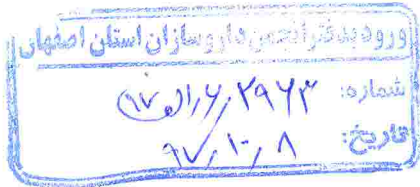 ورود به دفتر انجمن داروسازان استان اصفهان
شماره: ۹۷/الف/۶/۲۹۶۳
تاریخ: ۹۷/۱۰/۸